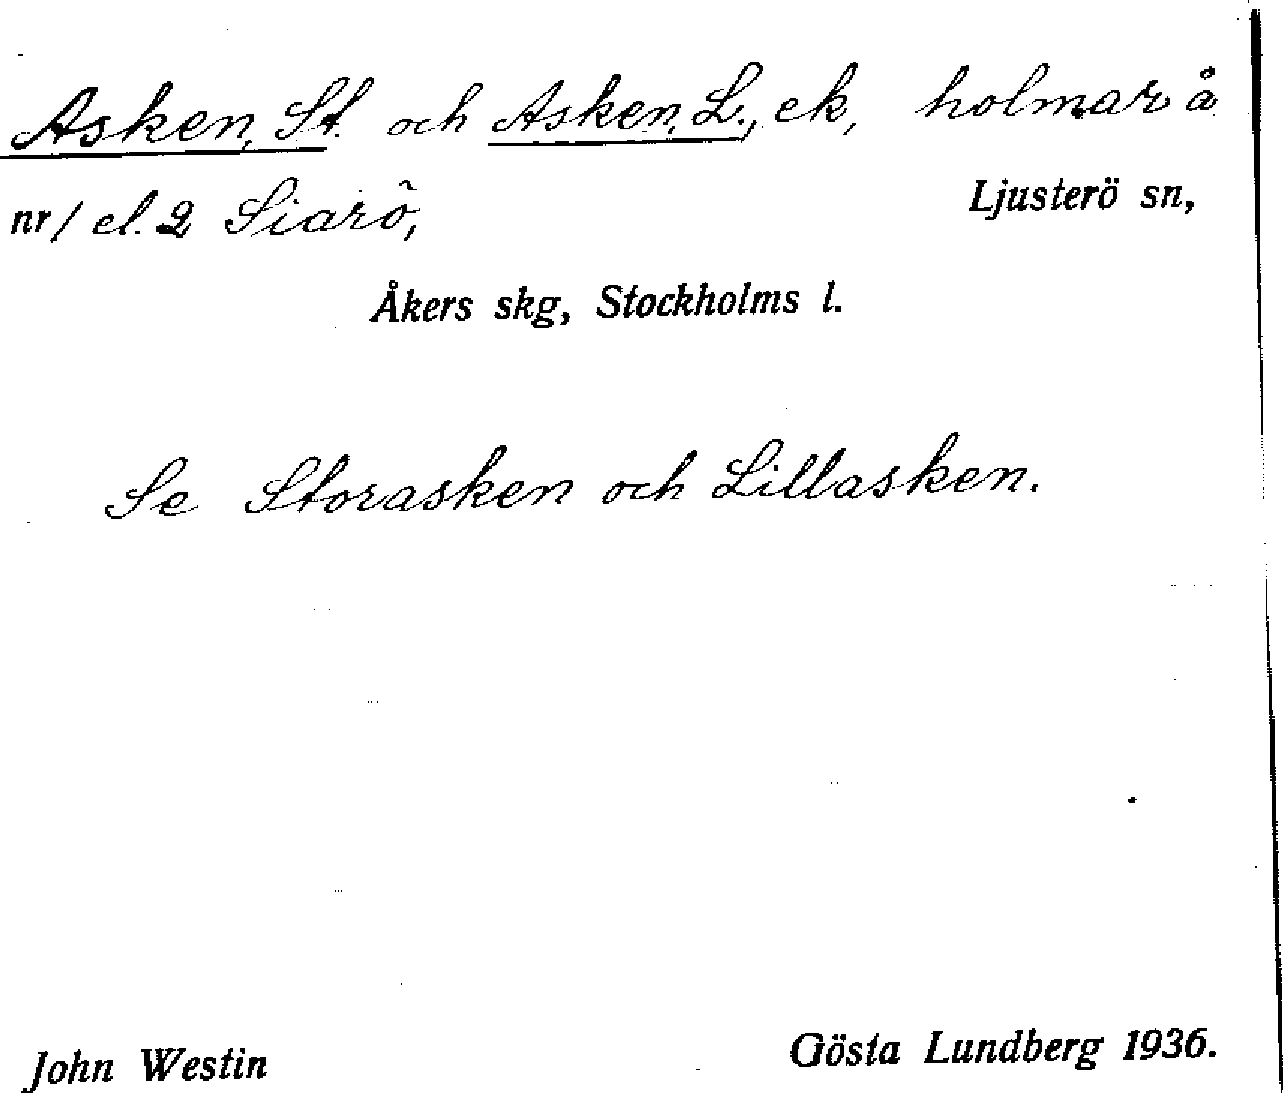 Asken, St. och Asken, L., ek, holmar å
nr 1 el. 2 Siarö, Ljusterö sn,
Åkers skg, Stockholms l.
Se Storasken och Lillasken.
John Westin Gösta Lundberg 1936.